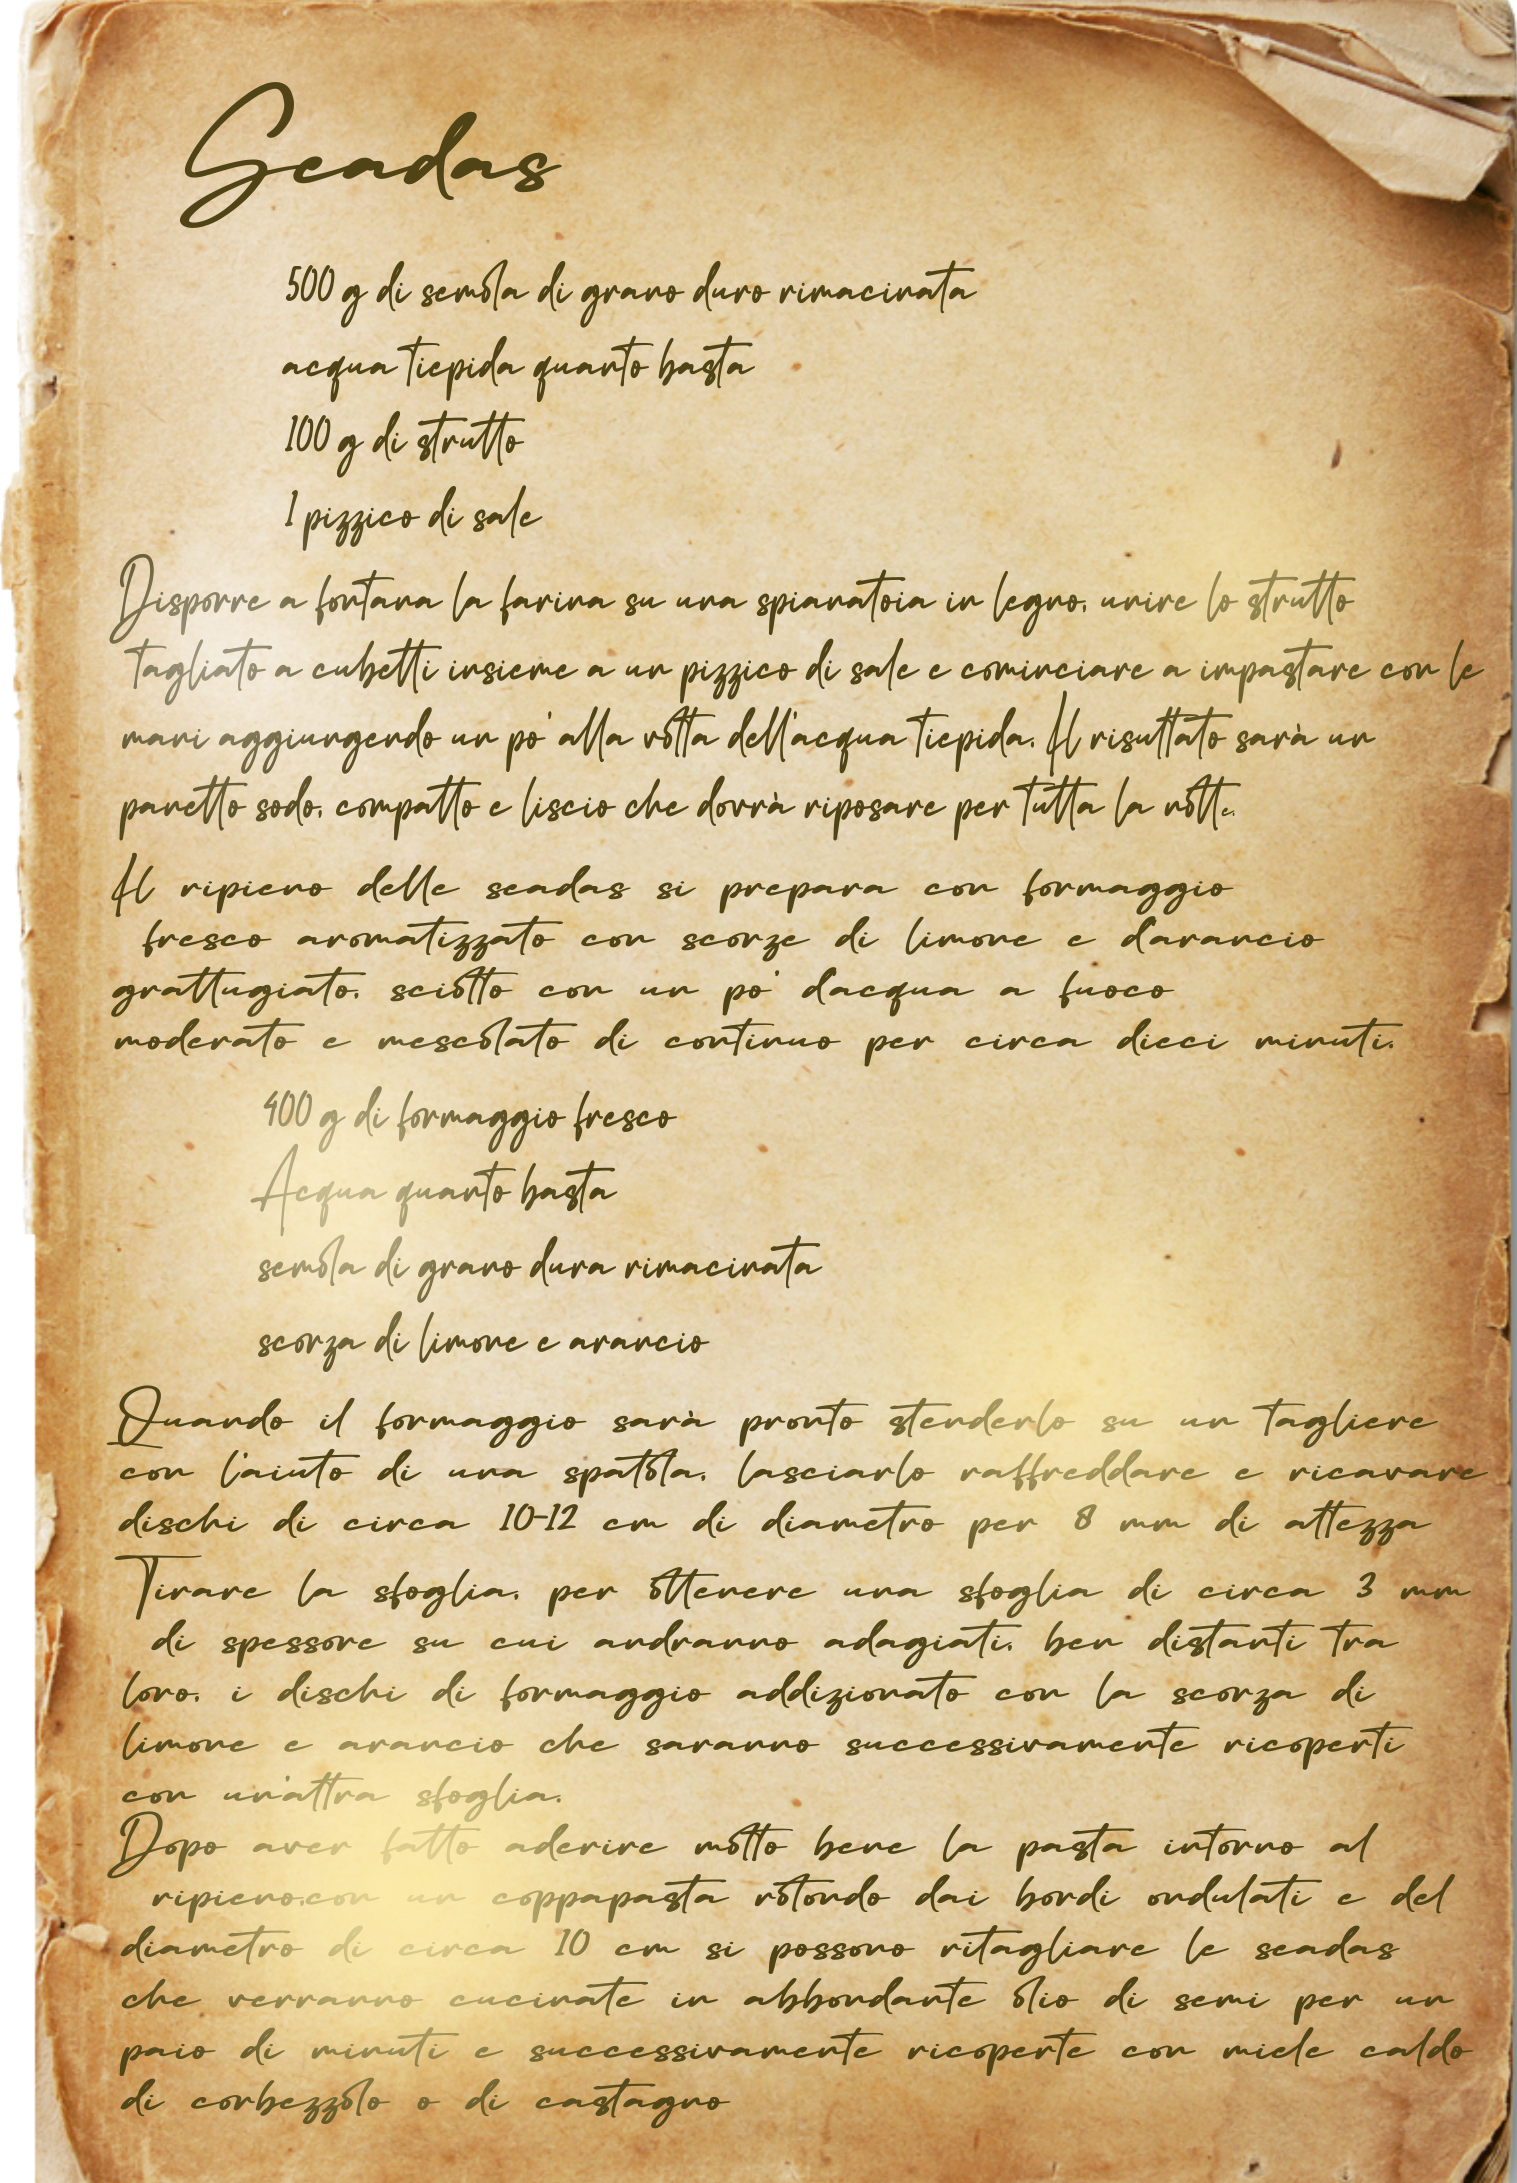 Seadas
500 g di semola di grano duro rimacinata
acqua tiepida quanto basta
100 g di strutto
1 pizzico di sale
Disporre a fontana la farina su una spianatoia in legno, unire lo strutto
tagliato a cubetti insieme a un pizzico di sale e cominciare a impastare con le
mani aggiungendo un po' alla volta dell'acqua tiepida. Il risultato sarà un
panetto sodo, compatto e liscio che dovrà riposare per tutta la notte.
Il ripieno delle seadas si prepara con formaggio
fresco aromatizzato con scorze di limone e d'arancio
grattugiato, sciolto con un po' d'acqua a fuoco
moderato e mescolato di continuo per circa dieci minuti.
400 g di formaggio fresco
Acqua quanto basta
semola di grano dura rimacinata
scorza di limone e arancio
Quando il formaggio sarà pronto stenderlo su un tagliere
con l'aiuto di una spatola, lasciarlo raffreddare e ricavare
dischi di circa 10-12 cm di diametro per 8 mm di altezza
Tirare la sfoglia, per ottenere una sfoglia di circa 3 mm
di spessore su cui andranno adagiati, ben distanti tra
loro, i dischi di formaggio addizionato con la scorza di
limone e arancio che saranno successivamente ricoperti
con un'altra sfoglia.
Dopo aver fatto aderire molto bene la pasta intorno al
ripieno,con un coppapasta rotondo dai bordi ondulati e del
diametro di circa 10 cm si possono ritagliare le seadas
che verranno cucinate in abbondante olio di semi per un
paio di minuti e successivamente ricoperte con miele caldo
di corbezzolo o di castagno